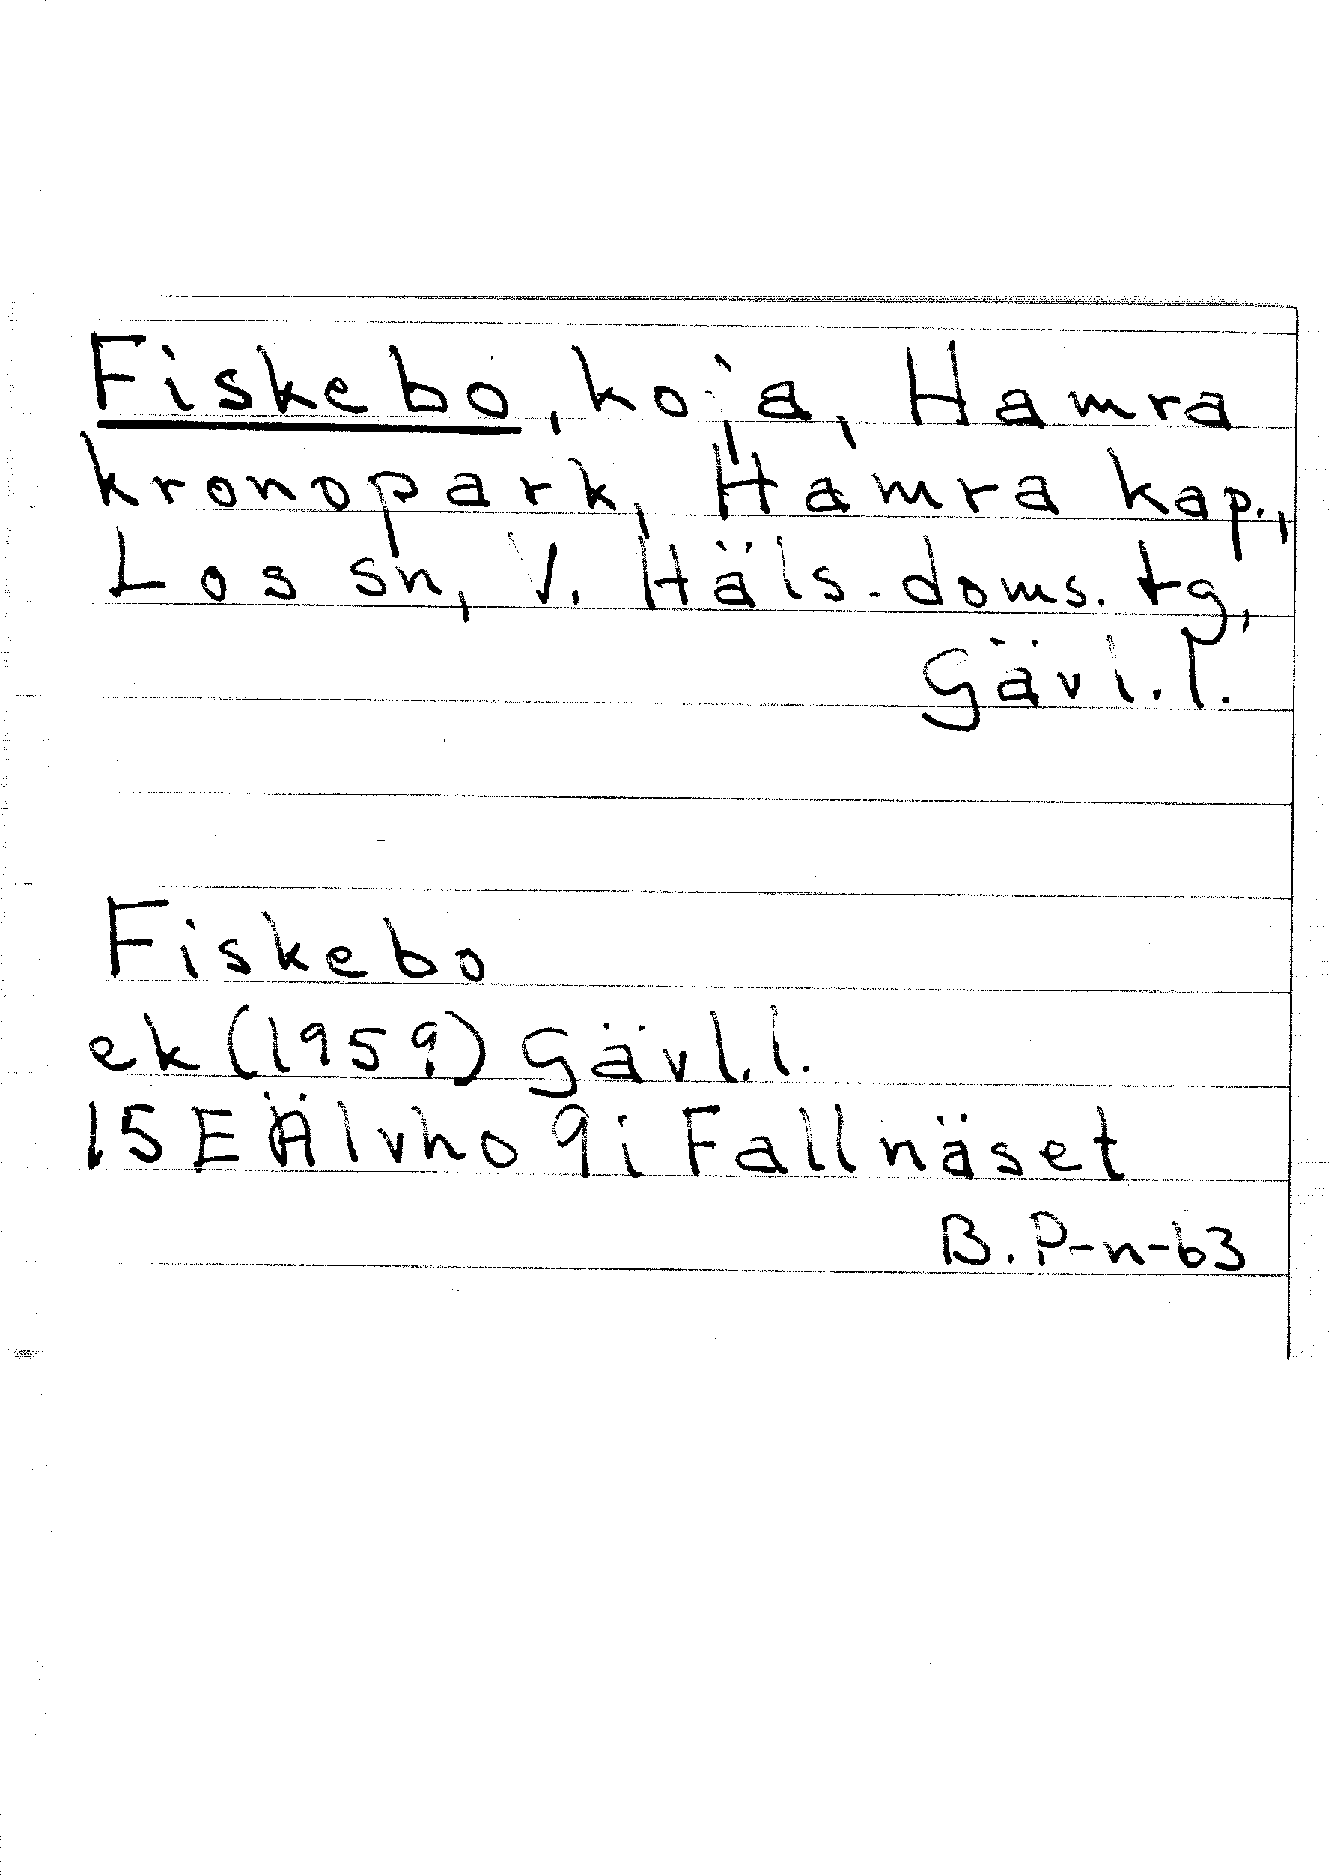 Fiskebo, koja, Hamra
kronopark, Hamra kap.,
Los sn, V. Häls. doms. tg,
Gävl. l.
Fiskebo
ek (1959) Gävl. l.
15 E Älvho 9i Fallnäset
B. P-n-63